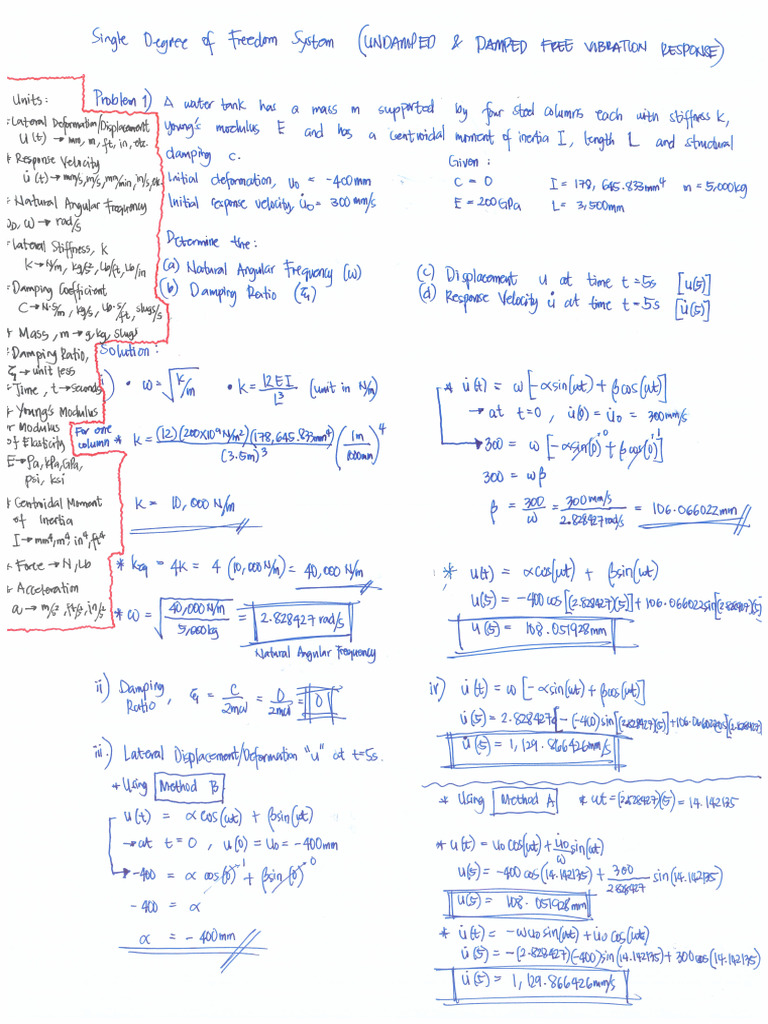 Single Degree of Freedom System (UNDAMPED & DAMPED FREE VIBRATION RESPONSE)
Units:
Lateral Deformation/Displacement
U(t) → mm, m, ft, in, etc.
* Response Velocity
u̇(t) → mm/s, m/s, mm/min, in/s, etc
Natural Angular Frequency
ω → rad/s
Lateral Stiffness, k
k → N/m, kg/s², Lb/ft, Lb/in
Damping Coefficient
C → N·s/m, kg/s, Lb·s/ft, slugs/s
* Mass, m → g, kg, slugs
Damping Ratio,
ξ → unit less
Time, t → seconds
* Young's Modulus
or Modulus
of Elasticity
E → Pa, kPa, GPa,
psi, ksi
* Centroidal Moment
of Inertia
I → mm⁴, m⁴, in⁴, ft⁴
* Force → N, Lb
* Acceleration
a → m/s², ft/s², in/s²
Problem 1) A water tank has a mass m supported by four steel columns each with stiffness k,
young's modulus E and has a centroidal moment of inertia I, length L and structural
damping c.
Initial deformation, u₀ = -400mm
Initial response velocity, u̇₀ = 300 mm/s
Given:
C = 0 I = 178,645.833mm⁴ m = 5,000kg
E = 200GPa L = 3,500mm
Determine the:
(a) Natural Angular Frequency (ω)
(b) Damping Ratio (ξ)
(c) Displacement u at time t=5s [u(5)]
(d) Response Velocity u̇ at time t=5s [u̇(5)]
Solution:
i) • ω = √(k/m) • k = 12EI/L³ (unit in N/m)
For one column * k = (12)(200x10⁹ N/m²)(178,645.833mm⁴)/(3.5m)³ (1m/1000mm)⁴
k = 10,000 N/m
* keq = 4k = 4(10,000 N/m) = 40,000 N/m
* ω = √(40,000 N/m / 5,000kg) = 2.828427 rad/s
Natural Angular Frequency
ii) Damping Ratio, ξ = C/2mω = 0/2mω = 0
iii.) Lateral Displacement/Deformation "u" at t=5s.
* Using Method B
u(t) = αcos(ωt) + βsin(ωt)
→ at t = 0, u(0) = u₀ = -400mm
-400 = α cos(0)→1 + βsin(0)→0
-400 = α
α = -400mm
* u̇(t) = ω[-αsin(ωt) + βcos(ωt)]
→ at t=0, u̇(0) = u̇₀ = 300mm/s
300 = ω[-αsin(0)→0 + βcos(0)→1]
300 = ωβ
β = 300/ω = 300mm/s / 2.828427 rad/s = 106.066022mm
* u(t) = αcos(ωt) + βsin(ωt)
u(5) = -400cos[(2.828427)(5)] + 106.066022sin[(2.828427)(5)]
u(5) = 108.051928mm
iv) u̇(t) = ω[-αsin(ωt) + βcos(ωt)]
u̇(5) = 2.828427[-(-400)sin[(2.828427)(5)] + 106.066022cos[(2.828427)
u̇(5) = 1,129.866426mm/s
* Using Method A * ωt = (2.828427)(5) = 14.142135
* u(t) = u₀cos(ωt) + u̇₀/ω sin(ωt)
u(5) = -400 cos(14.142135) + 300/2.828427 sin(14.142135)
u(5) = 108.051928mm
* u̇(t) = -ωu₀sin(ωt) + u̇₀cos(ωt)
u̇(5) = -(2.828427)(-400)sin(14.142135) + 300cos(14.142135)
u̇(5) = 1,129.866426mm/s